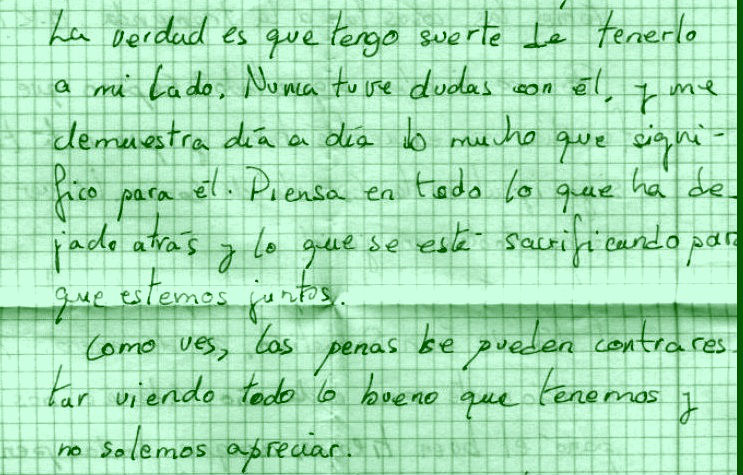 La verdad es que tengo suerte de tenerlo
a mi lado. Nunca tuve dudas con él, y me
demuestra día a día lo mucho que signi-
fico para él. Piensa en todo lo que ha de-
jado atrás y lo que se está sacrificando para
que estemos juntos.
Como ves, las penas se pueden contrarres-
tar viendo todo lo bueno que tenemos y
no solemos apreciar.